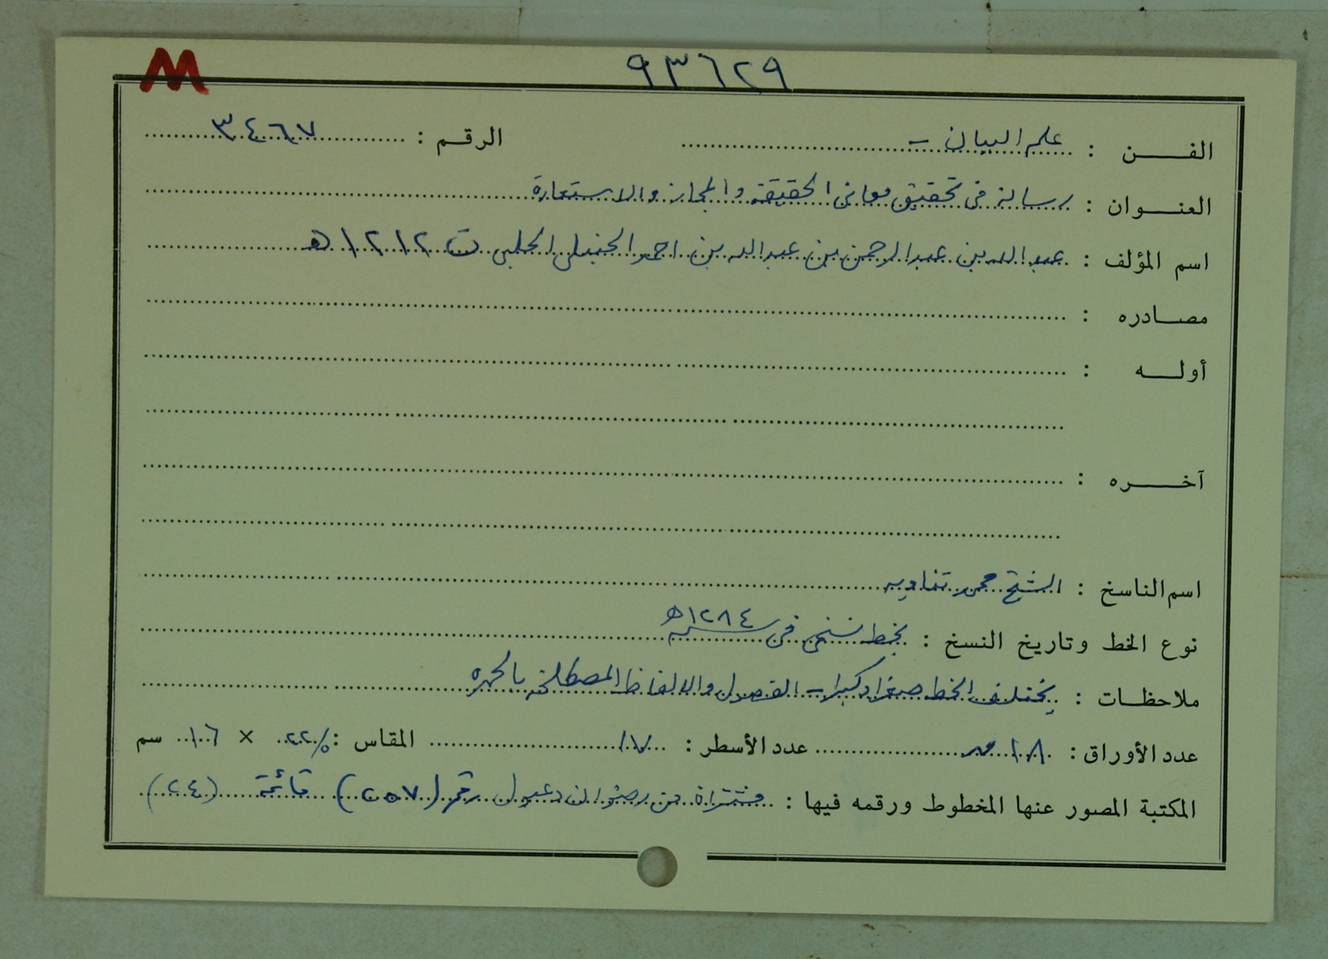 M
٩٣٦٢٩
الفن : علم البيان - الرقم : ٣٤٦٧
العنوان : رسالة في تحقيق معاني الحقيقة والمجاز والاستعارة
اسم المؤلف : عبد الله بن عبد الرحمن بن عبد الله بن احمد الحنبلي الحلبي ت ١٢١٢ هـ
مصادره :
أوله :
آخره :
اسم الناسخ : الشيخ محمد
نوع الخط وتاريخ النسخ : بخط نسخي في سنة ١٢٨٤ هـ
ملاحظات : يختلف الخط صغرا وكبرا - الفصول والالفاظ المصطلحة بالحمرة
عدد الأوراق : ١٨ عدد الأسطر : ١٧ المقاس : ٢٢٫٥ × ١٦ سم
المكتبة المصور عنها المخطوط ورقمه فيها : مشتراة من رضوان دعبول رقم (٢٥٧) قائمة (٢٤)